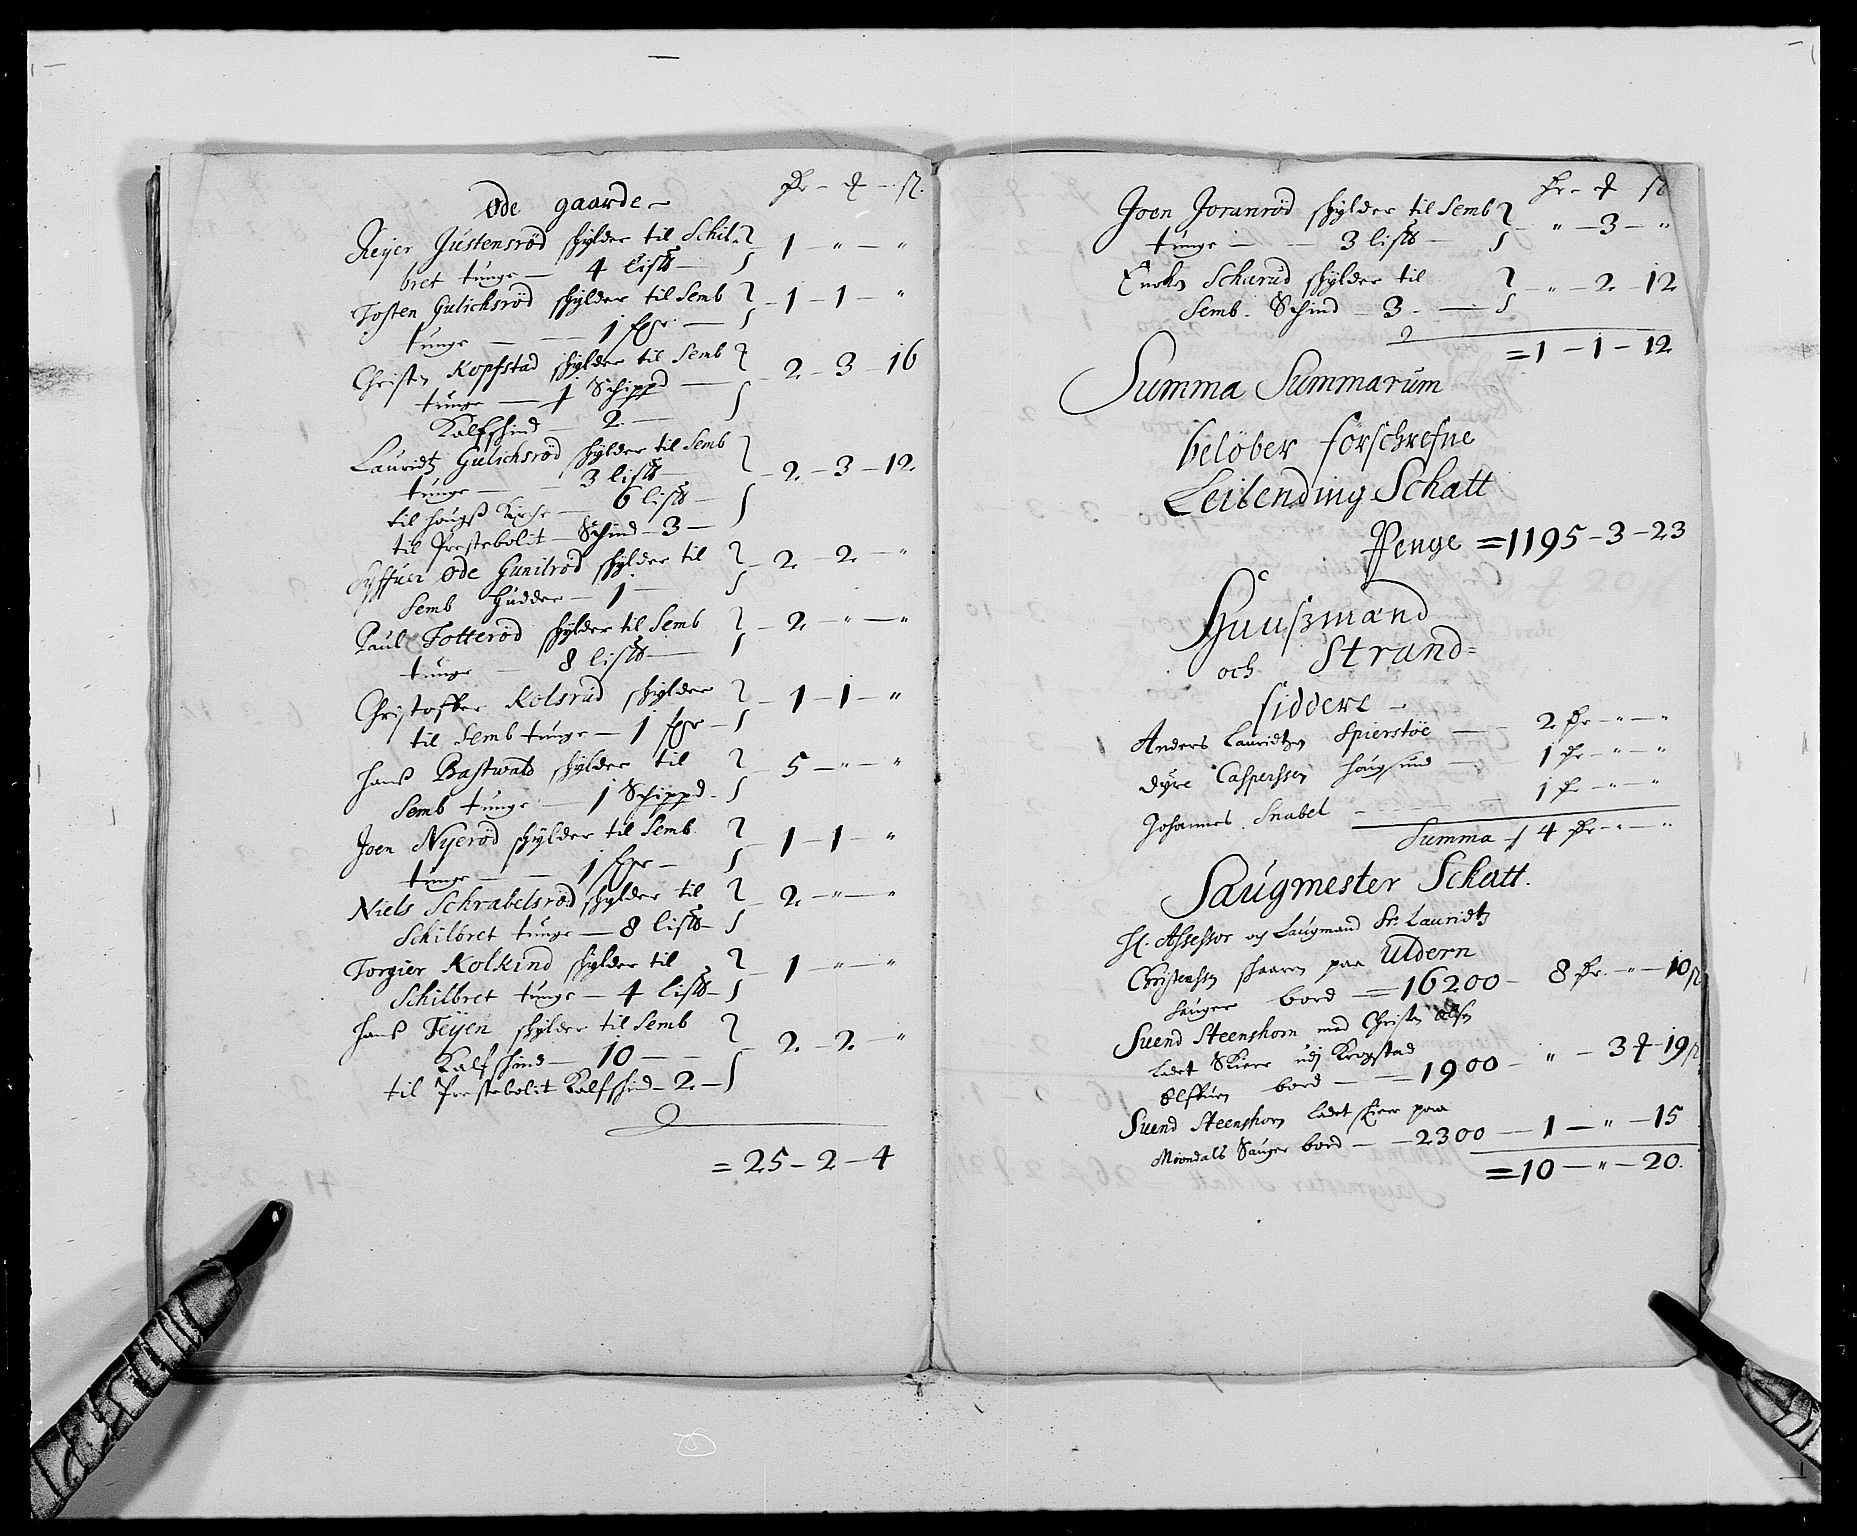 Øde gaarde - Dr - ƒ - ß.
Reyer Justensrød schylder til Schil-
bret tunge - 4 lispd - 1 - " - "
Tosten Gulichsrød schylder til Semb
tunge - 1 fgr - 1 - 1 - "
Christen Kopstad schylder til Semb
tunge - 1 Schippd - 2 - 3 - 16
Kalfschind - 2 -
Lauridtz Gulichsrød schylder til Semb
tunge - 3 lispd - 2 - 3 - 12
til Haugs Kirche - 6 lispd -
til Prestebolit - Schind - 3 -
Øde Gunilrød schylder til
Semb Hudder - 1 - 2 - 2 - "
Paul Totterød schylder til Semb
tunge - 8 lispd - 2 - " - "
Christoffer Kolsrud schylder
til Semb tunge - 1 fgr - 1 - 1 - "
Hans Bastwald schylder til
Semb tunge - 1 Schippd - 5 - " - "
Joen Nyerød schylder til Semb
tunge - 1 fgr - 1 - 1 - "
Niels Schrabelsrød schylder til
Schilbret tunge - 8 lispd - 2 - " - "
Torgier Kolkind schylder til
Schilbret tunge - 4 lispd - 1 - " - "
Hans Teyen schylder til Semb
Kalfschind - 10 - 2 - 2 - "
til Prestebolit Kalfschind - 2 -
= 25 - 2 - 4
Dr - ƒ ß
Joen Joranrød schylder til Semb
tunge - 3 lispd - " - 3 - "
Schurud schylder til
Semb. Schind - 3 - " - 2 - 12
= 1 - 1 - 12
Summa Summarum
beløber forschrefne
Leilending Schatt
Penge = 1195 - 3 - 23
Huuszmænd
och Strand=
siddere -
Anders Lauridtzen Spierstøe - 2 Dr - " - "
Dyre Caspersen Haugsund - 1 Dr - " - "
Johannes Snabel - 1 Dr - " - "
Summa - 4 Dr - " - "
Saugmester Schatt.
Hl. Assessor og Laugmand Sr. Lauridtz
Christensen schaaren paa Uldern
Sauger bord = 16200 - 8 Dr. - " - 10 ß
Suend Steenshorn med Christen Olsen
ladet Skiere udj Krogstad
Elfven bord - = 1900 - " - 3 ƒ - 19 ß
Suend Steenshorn ladet skier paa
Miøndals Sauger bord - 2300 - 1 - " - 15
= 10 - " - 20.